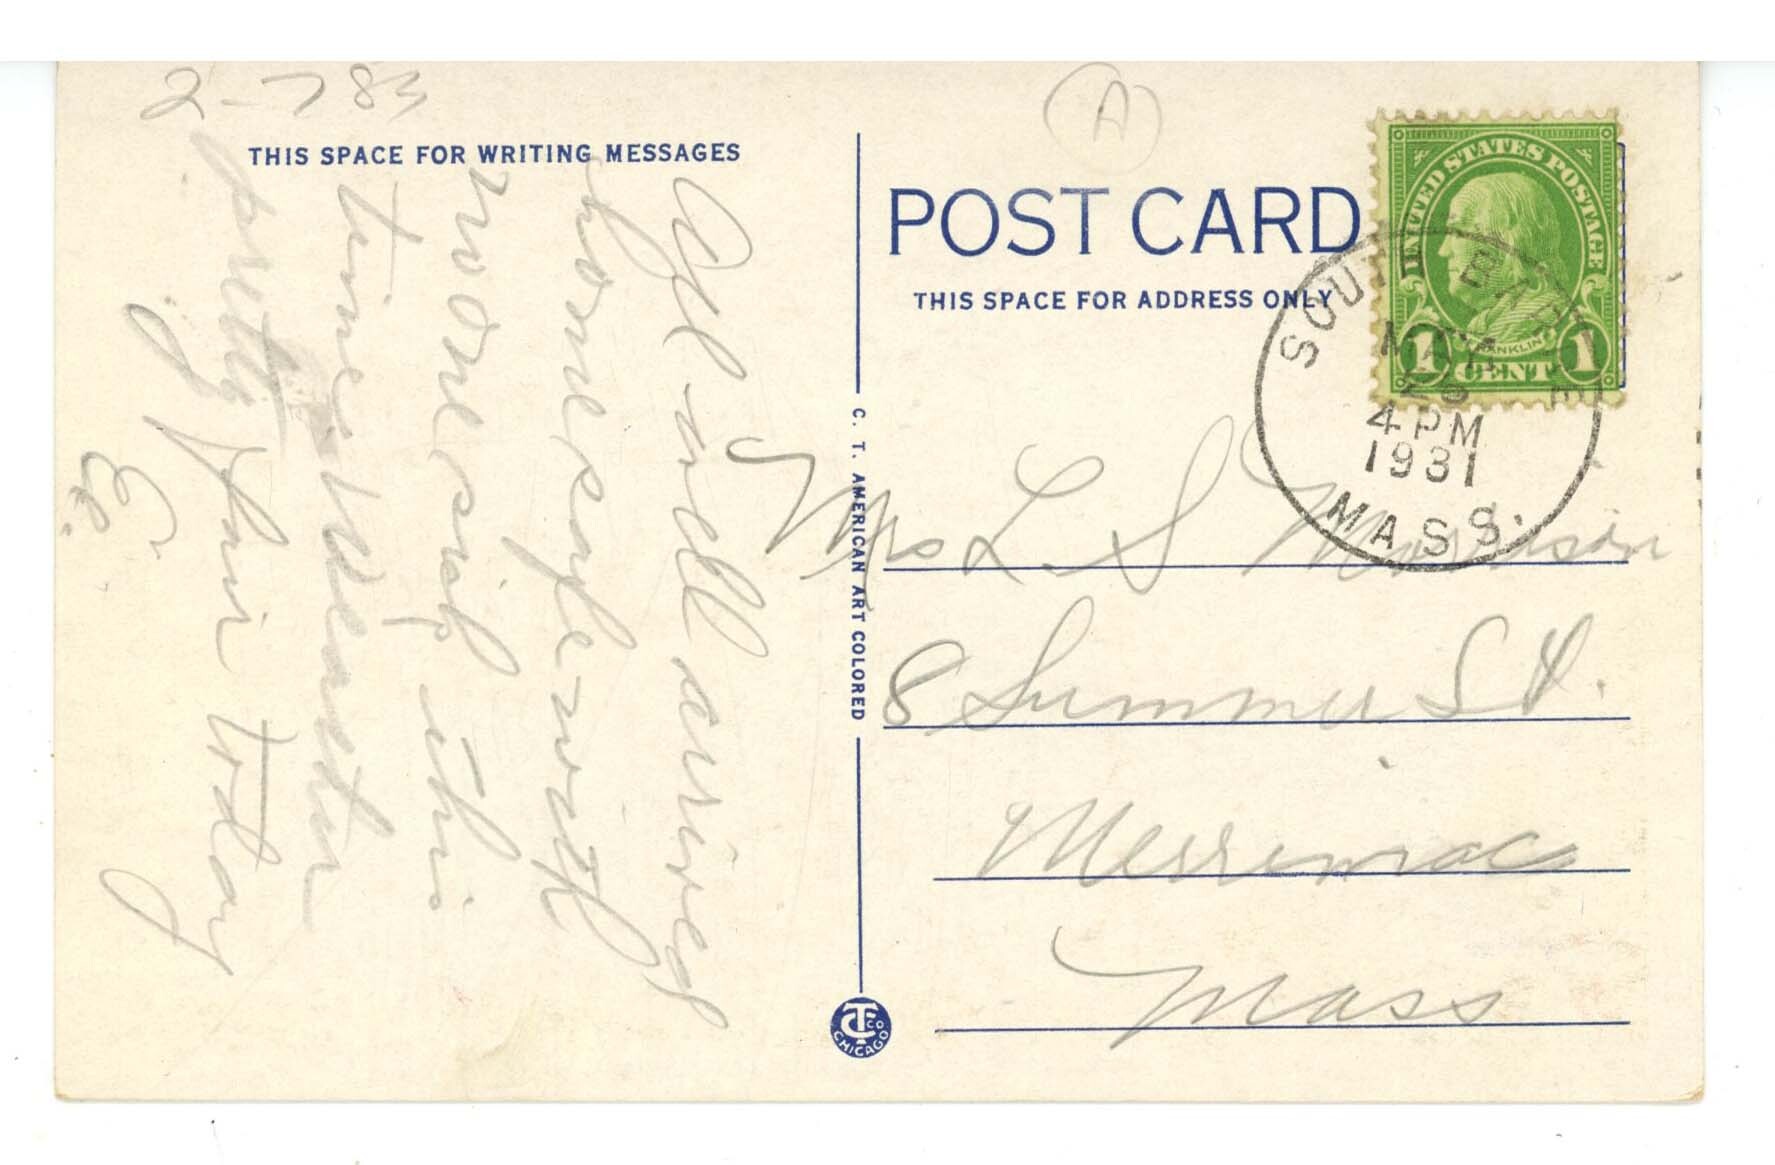 THIS SPACE FOR WRITING MESSAGES
All well arrived
home safe with
no one sick this
time weather
pretty fair today
POST CARD
THIS SPACE FOR ADDRESS ONLY
UNITED STATES POSTAGE
FRANKLIN
1 CENT 1
SOUTH BARRE
MAY
4 PM
1931
MASS.
C. T. AMERICAN ART COLORED
Mrs L S
8 Summer St.
Merrimac
Mass
CT CO
CHICAGO
A